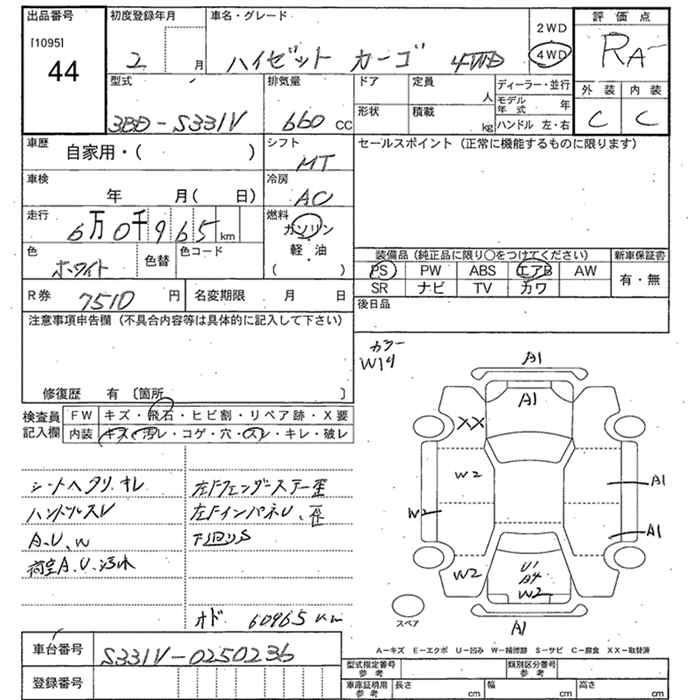 出品番号
[1095]
44
初度登録年月
2 月
車名・グレード
ハイゼット カーゴ 4WD
2WD
4WD
評価点
RA-
外装 内装
C C
型式
3BD-S331V
排気量
660 cc
ドア
定員
人
形状
積載
kg
ディーラー・並行
モデル年式 年
ハンドル 左・右
車歴
自家用・( )
シフト
MT
セールスポイント (正常に機能するものに限ります)
車検
年 月( 日)
冷房
AC
走行
6万0千965km
燃料
ガソリン
軽・油
( )
色
ホワイト
色替
色コード
装備品 (純正品に限り○をつけてください)
新車保証書
PS PW ABS エアB AW
有・無
SR ナビ TV カワ
R券
7510 円
名変期限 月 日
後日品
注意事項申告欄 (不具合内容等は具体的に記入して下さい)
修復歴 有 〔箇所 〕
カラー
W14
検査員
記入欄
FW キズ・飛石・ヒビ割・リペア跡・X要
内装 キズ・汚レ・コゲ・穴・スレ・キレ・破レ
シートヘタリ、オレ
ハンドルスレ
A.U.W
荷室A.U.汚れ
左Fフェンダーステー歪
左FインパネU、歪
下廻りS
オド、60965km
A1
A1
XX
W2
W2
A1
A1
W2
U1
A4
W2
A1
スペア
A-キズ E-エクボ U-凹み W-補修跡 S-サビ C-腐食 XX-取替済
車台番号
S331V-0250236
登録番号
型式指定番号
参考
類別区分番号
参考
車庫証明用
参考
長さ cm
幅 cm
高さ cm